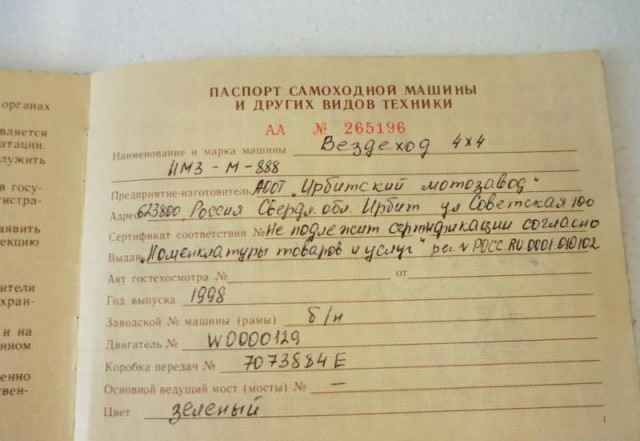 органах
вляется
атации.
служить
в госу-
истра-
аявить
екцию
ители
хран-
и на
нном
менно
твен-
ПАСПОРТ САМОХОДНОЙ МАШИНЫ
И ДРУГИХ ВИДОВ ТЕХНИКИ
АА № 265196
Наименование и марка машины Вездеход 4х4
ИМЗ-М-888
Предприятие-изготовитель АООТ „Ирбитский мотозавод"
Адрес 623800, Россия Свердл. обл. Ирбит ул Советская 100
Сертификат соответствия № Не подлежит сертификации согласно
Выдан „Номенклатуры товаров и услуг" рег. № РОСС.RU 0001.010102
Акт гостехосмотра № от
Год выпуска 1998
Заводской № машины (рамы) б/н
Двигатель № W0000129
Коробка передач № 7073884Е
Основной ведущий мост (мосты) № —
Цвет зеленый